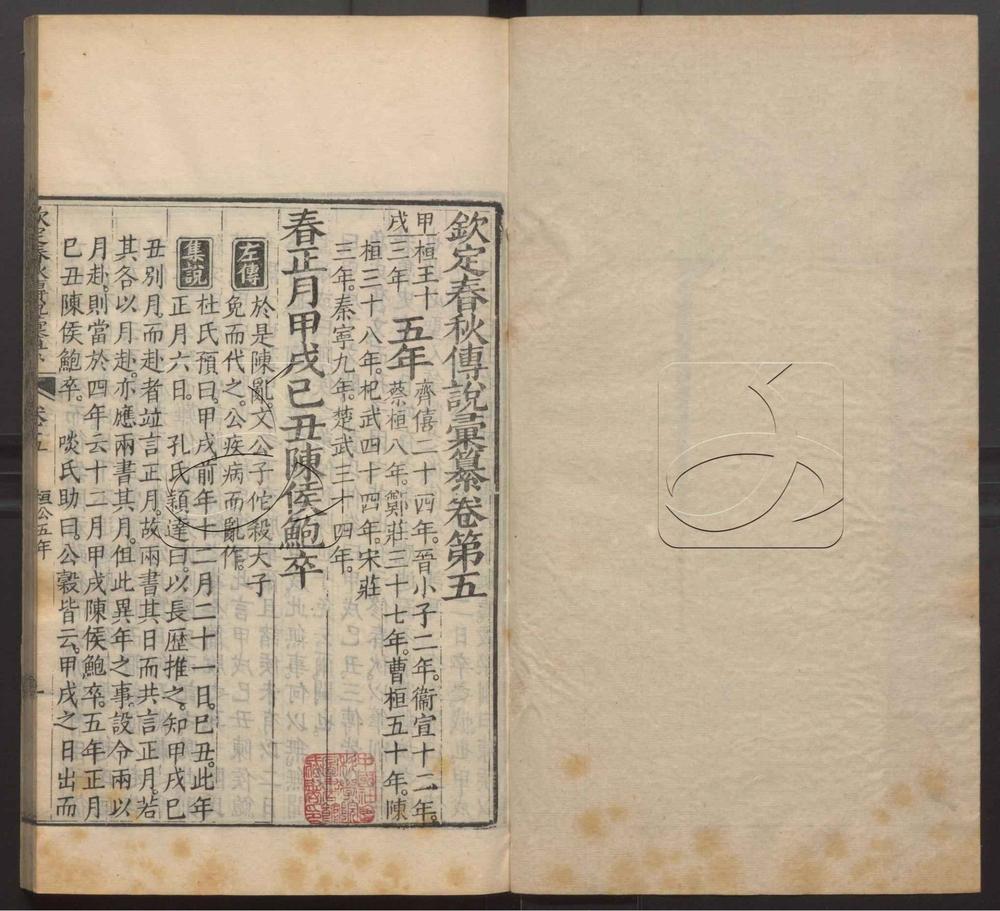 欽定春秋傳說彙纂卷第五
甲戌 桓王十三年 五年 齊僖二十四年。晉小子二年。衞宣十二年。蔡桓八年。鄭莊三十七年。曹桓五十年。陳
桓三十八年。杞武四十四年。宋莊三年。秦寧九年。楚武三十四年。
春正月甲戌己丑陳侯鮑卒
左傳 於是陳亂。文公子佗殺大子
免而代之。公疾病而亂作。
集說 杜氏預曰。甲戌前年十二月二十一日。己丑。此年
正月六日。 孔氏穎達曰。以長歷推之。知甲戌己
丑別月。而赴者竝言正月。故兩書其日而共言正月。若
其各以月赴。亦應兩書其月。但此異年之事。設令兩以
月赴。則當於四年云十二月甲戌陳侯鮑卒。五年正月
己丑陳侯鮑卒。 啖氏助曰。公穀皆云。甲戌之日出而
欽定春秋傳說彙纂 卷五 桓公五年 一